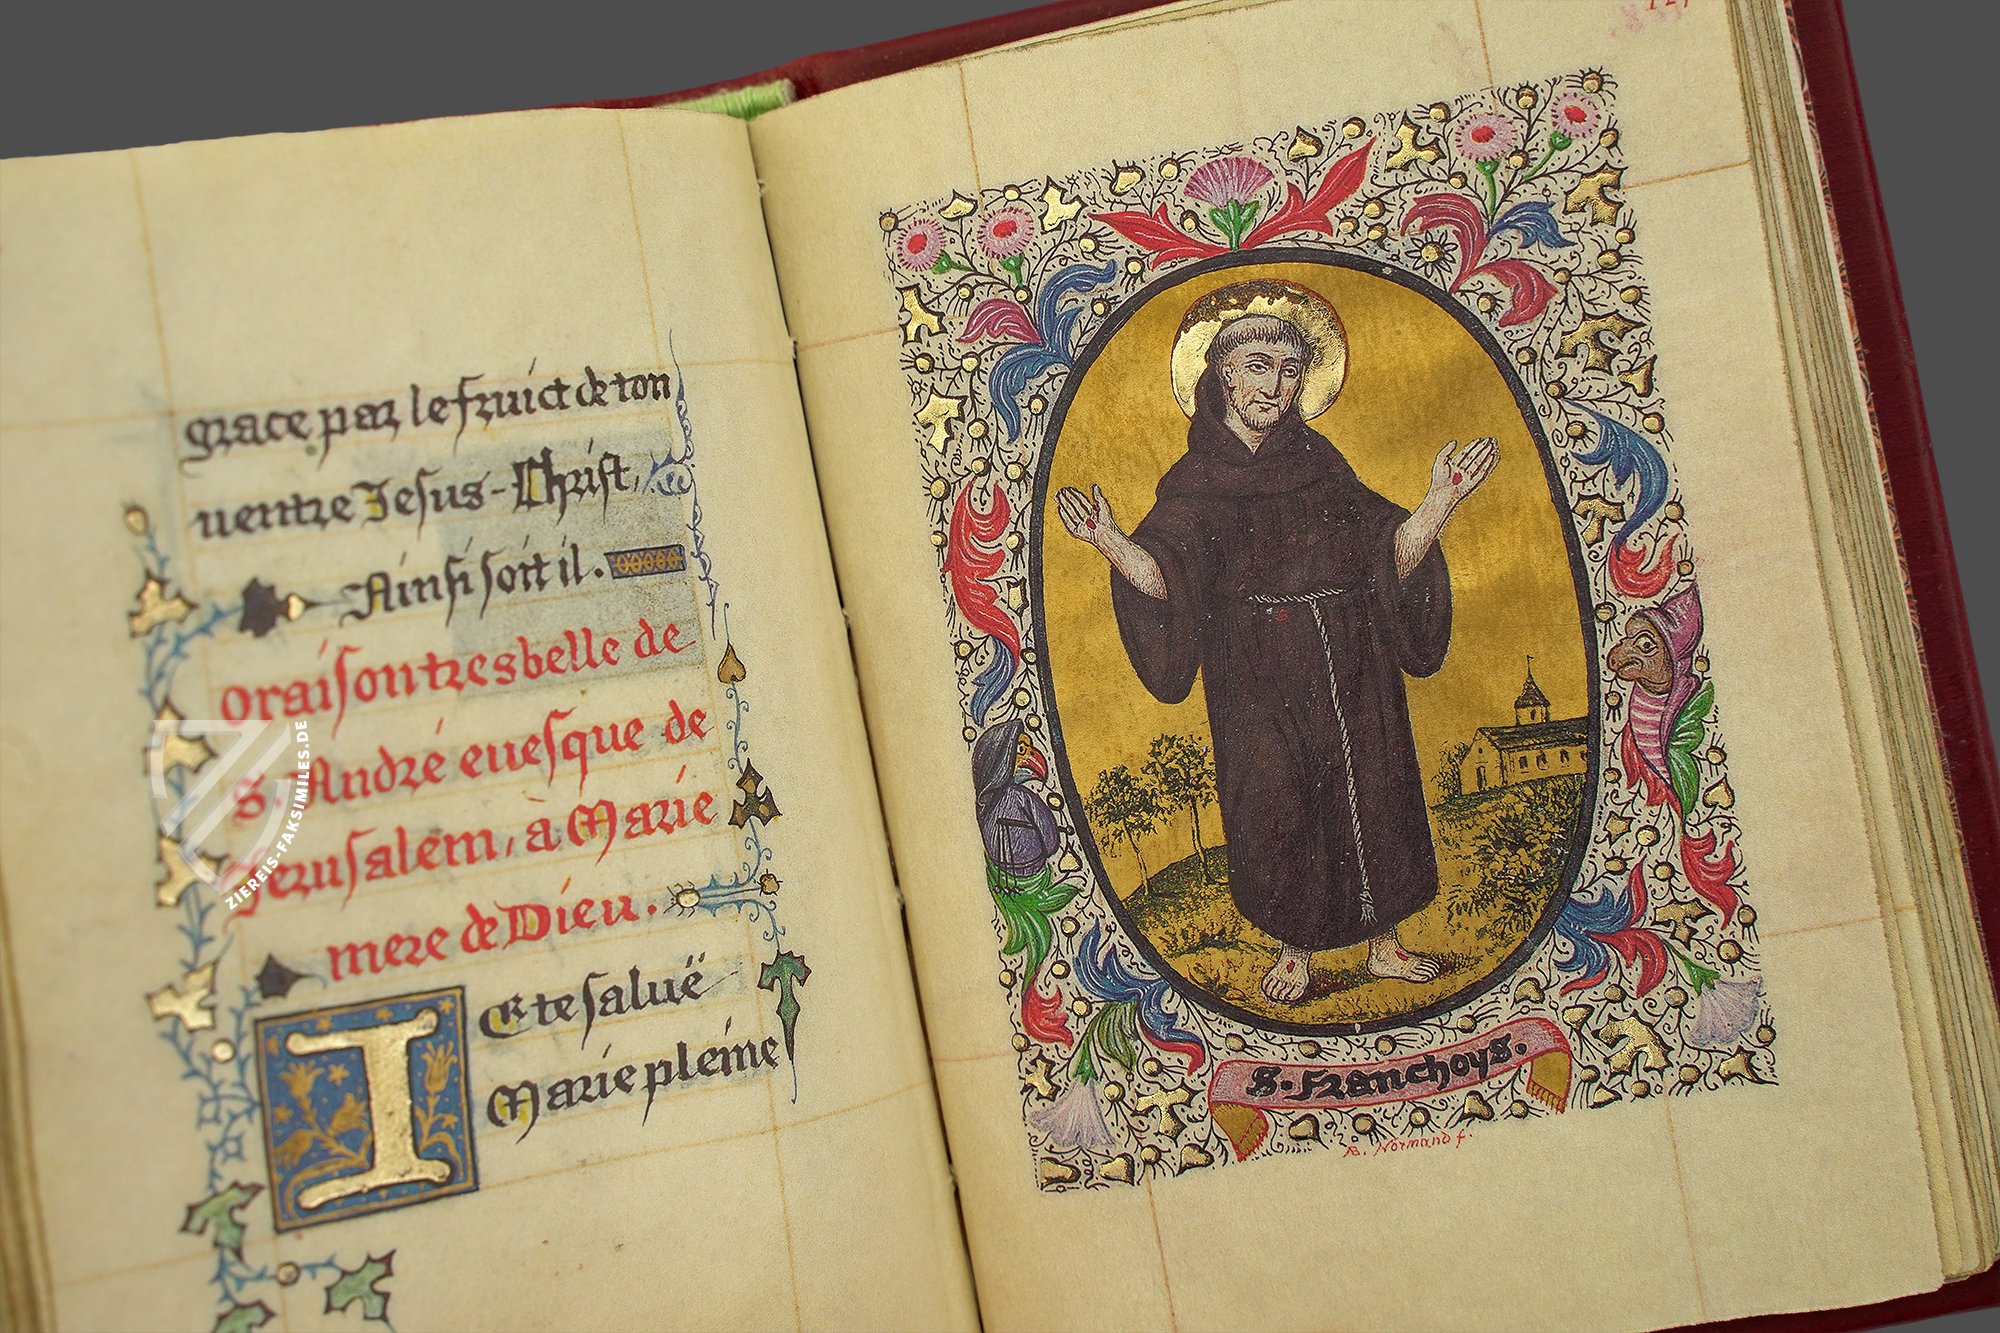 grace par le fruict de ton
ventre Jesus-Christ,
Ainsi soit il.
Oraison tres belle de
S. André evesque de
Jerusalem, à Marie
mere de Dieu.
IE te saluë
Marie pleine
S. Franchoys.
B. Normand f.
ZIEREIS-FAKSIMILES.DE